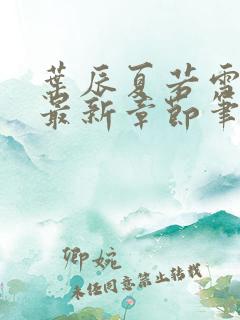 葉辰夏若雪
最新章節筆
卿婉
未经同意禁止转载